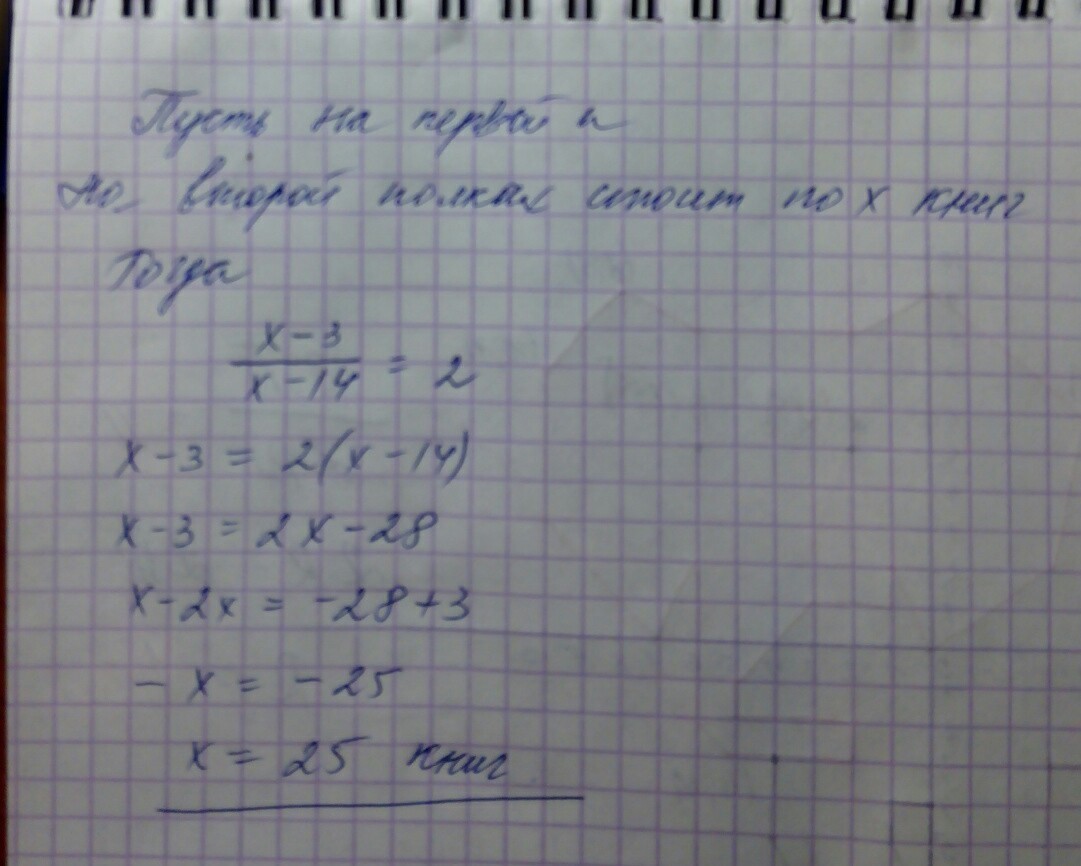 Пусть на первый и
но второй полках стоит по x книг
Тогда
x-3
x-14 = 2
x-3 = 2(x-14)
x-3 = 2x-28
x-2x = -28+3
-x = -25
x = 25 книг